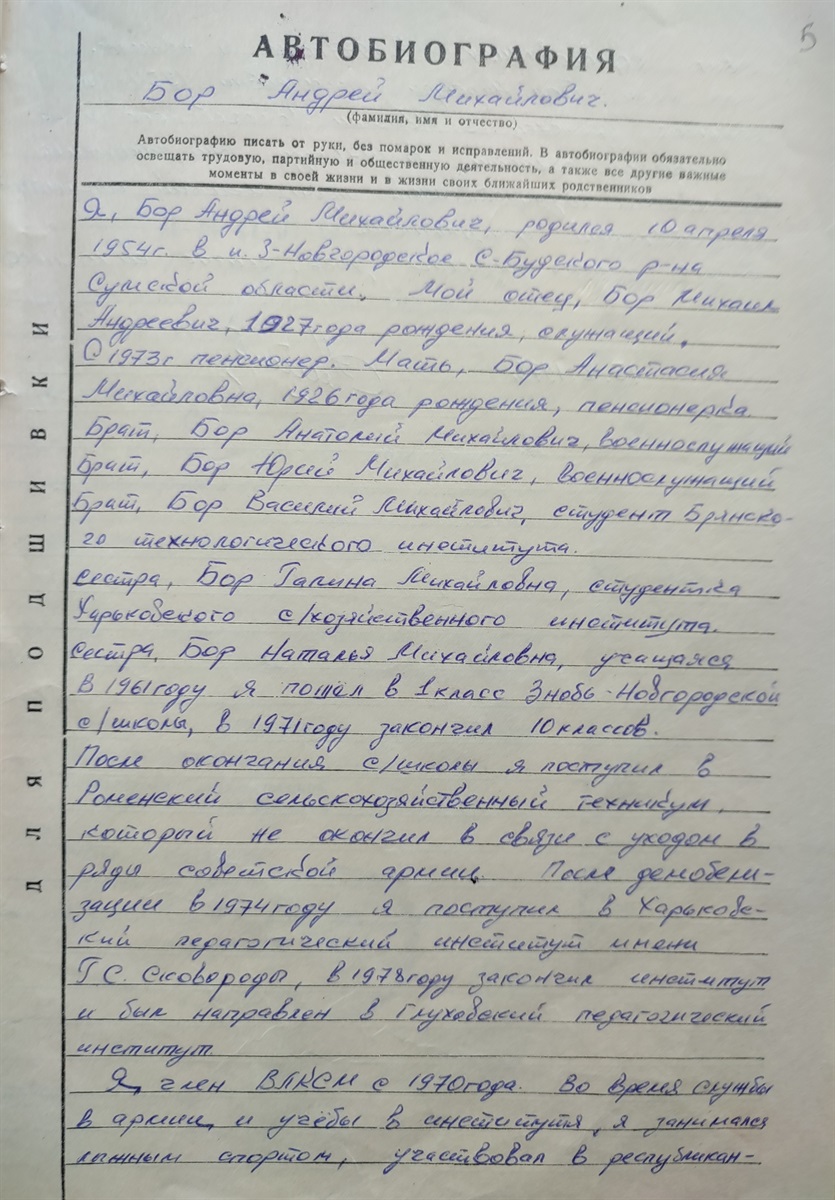 5
АВТОБИОГРАФИЯ
Бор Андрей Михайлович.
(фамилия, имя и отчество)
Автобиографию писать от руки, без помарок и исправлений. В автобиографии обязательно
освещать трудовую, партийную и общественную деятельность, а также все другие важные
моменты в своей жизни и в жизни своих ближайших родственников
Я, Бор Андрей Михайлович, родился 10 апреля
1954г. в н. З-Новгородское С-Будского р-на
Сумской области. Мой отец, Бор Михаил
Андреевич, 1927 года рождения, служащий.
С 1973г пенсионер. Мать, Бор Анастасия
Михайловна, 1926 года рождения, пенсионерка.
Брат, Бор Анатолий Михайлович, военнослужащий
Брат, Бор Юрий Михайлович, военнослужащий
Брат, Бор Василий Михайлович, студент Брянско-
го технологического института.
Сестра, Бор Галина Михайловна, студентка
Харьковского с/хозяйственного института.
Сестра, Бор Наталья Михайловна, учащаяся
В 1961 году я пошёл в 1 класс Знобь-Новгородской
с/школы, в 1971 году закончил 10 классов.
После окончания с/школы я поступил в
Роменский сельскохозяйственный техникум,
который не окончил в связи с уходом в
ряды советской армии. После демобели-
зации в 1974 году я поступил в Харьковс-
кий педагогический институт имени
Г.С. Сковороды, в 1978 году закончил институт
и был направлен в Глуховский педагогический
институт.
Я, член ВЛКСМ с 1970 года. Во время службы
в армии, и учёбы в институтя, я занимался
лыжным спортом, участвовал в республикан-
ДЛЯ ПОДШИВКИ